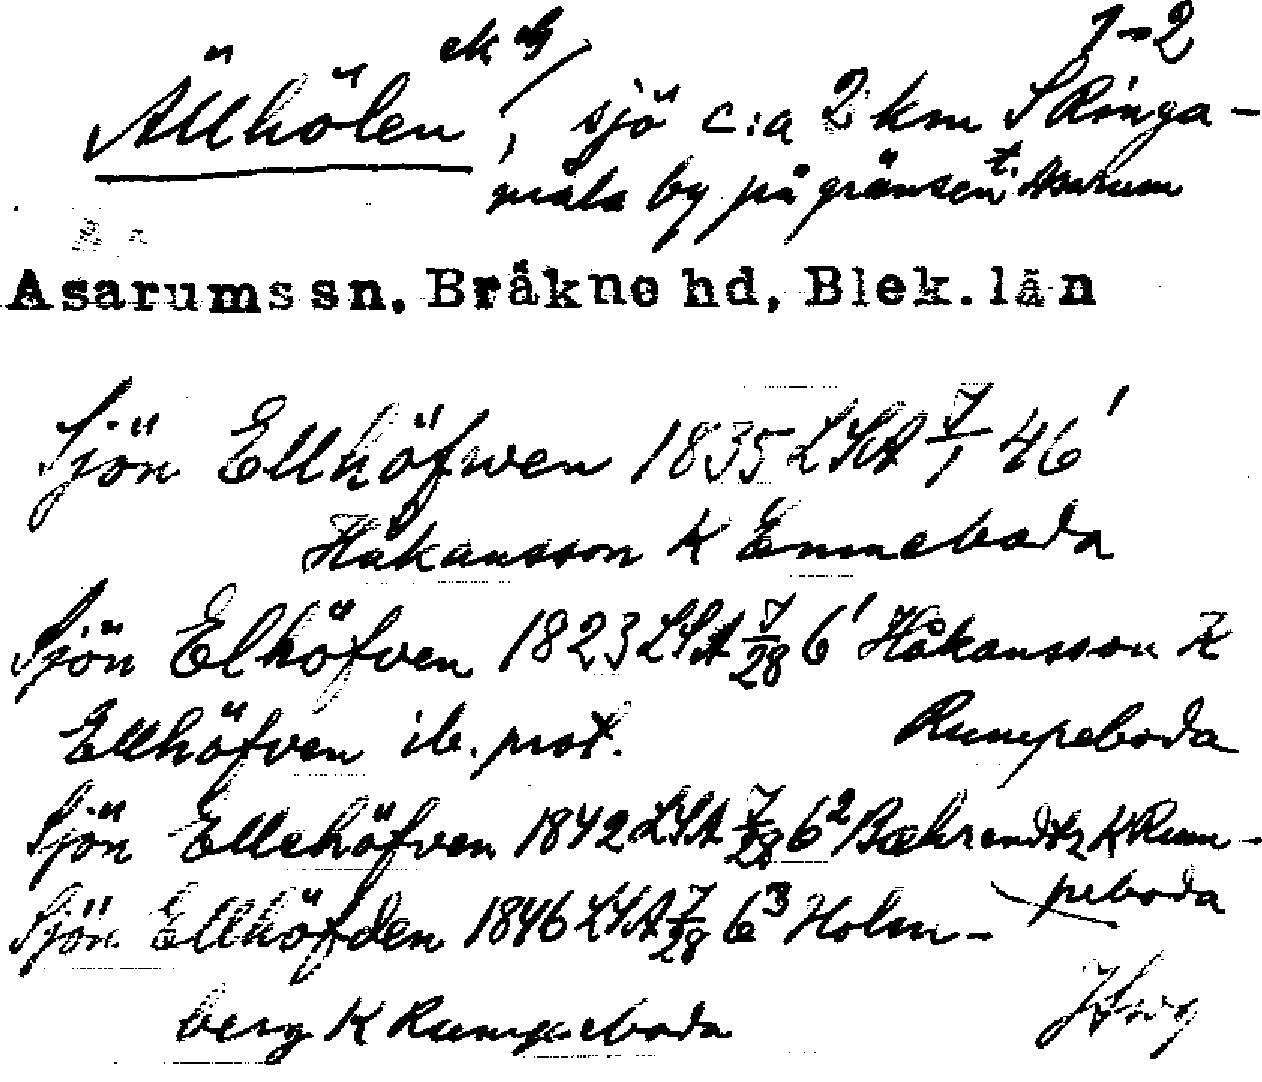 1-2
ek kg
Ällhölen, sjö c:a 2 km S Ringa-
måla by på gränsen t. Asarum
Asarums sn, Bräkne hd, Blek. län
Sjön Ellhöfwen 1835 LSA 7/1 46'
Håkansson K Enneboda
Sjön Elhöfven 1823 LSA 7/28 6' Håkansson K
Ellhöfven ib. prot. Rumpeboda
Sjön Ellehöfven 1842 LSA 7/28 6² Bæhrendtz K Rum-
peboda
Sjön Ellhöfden 1846 LSA 7/28 6³ Holm-
berg K Rumpeboda